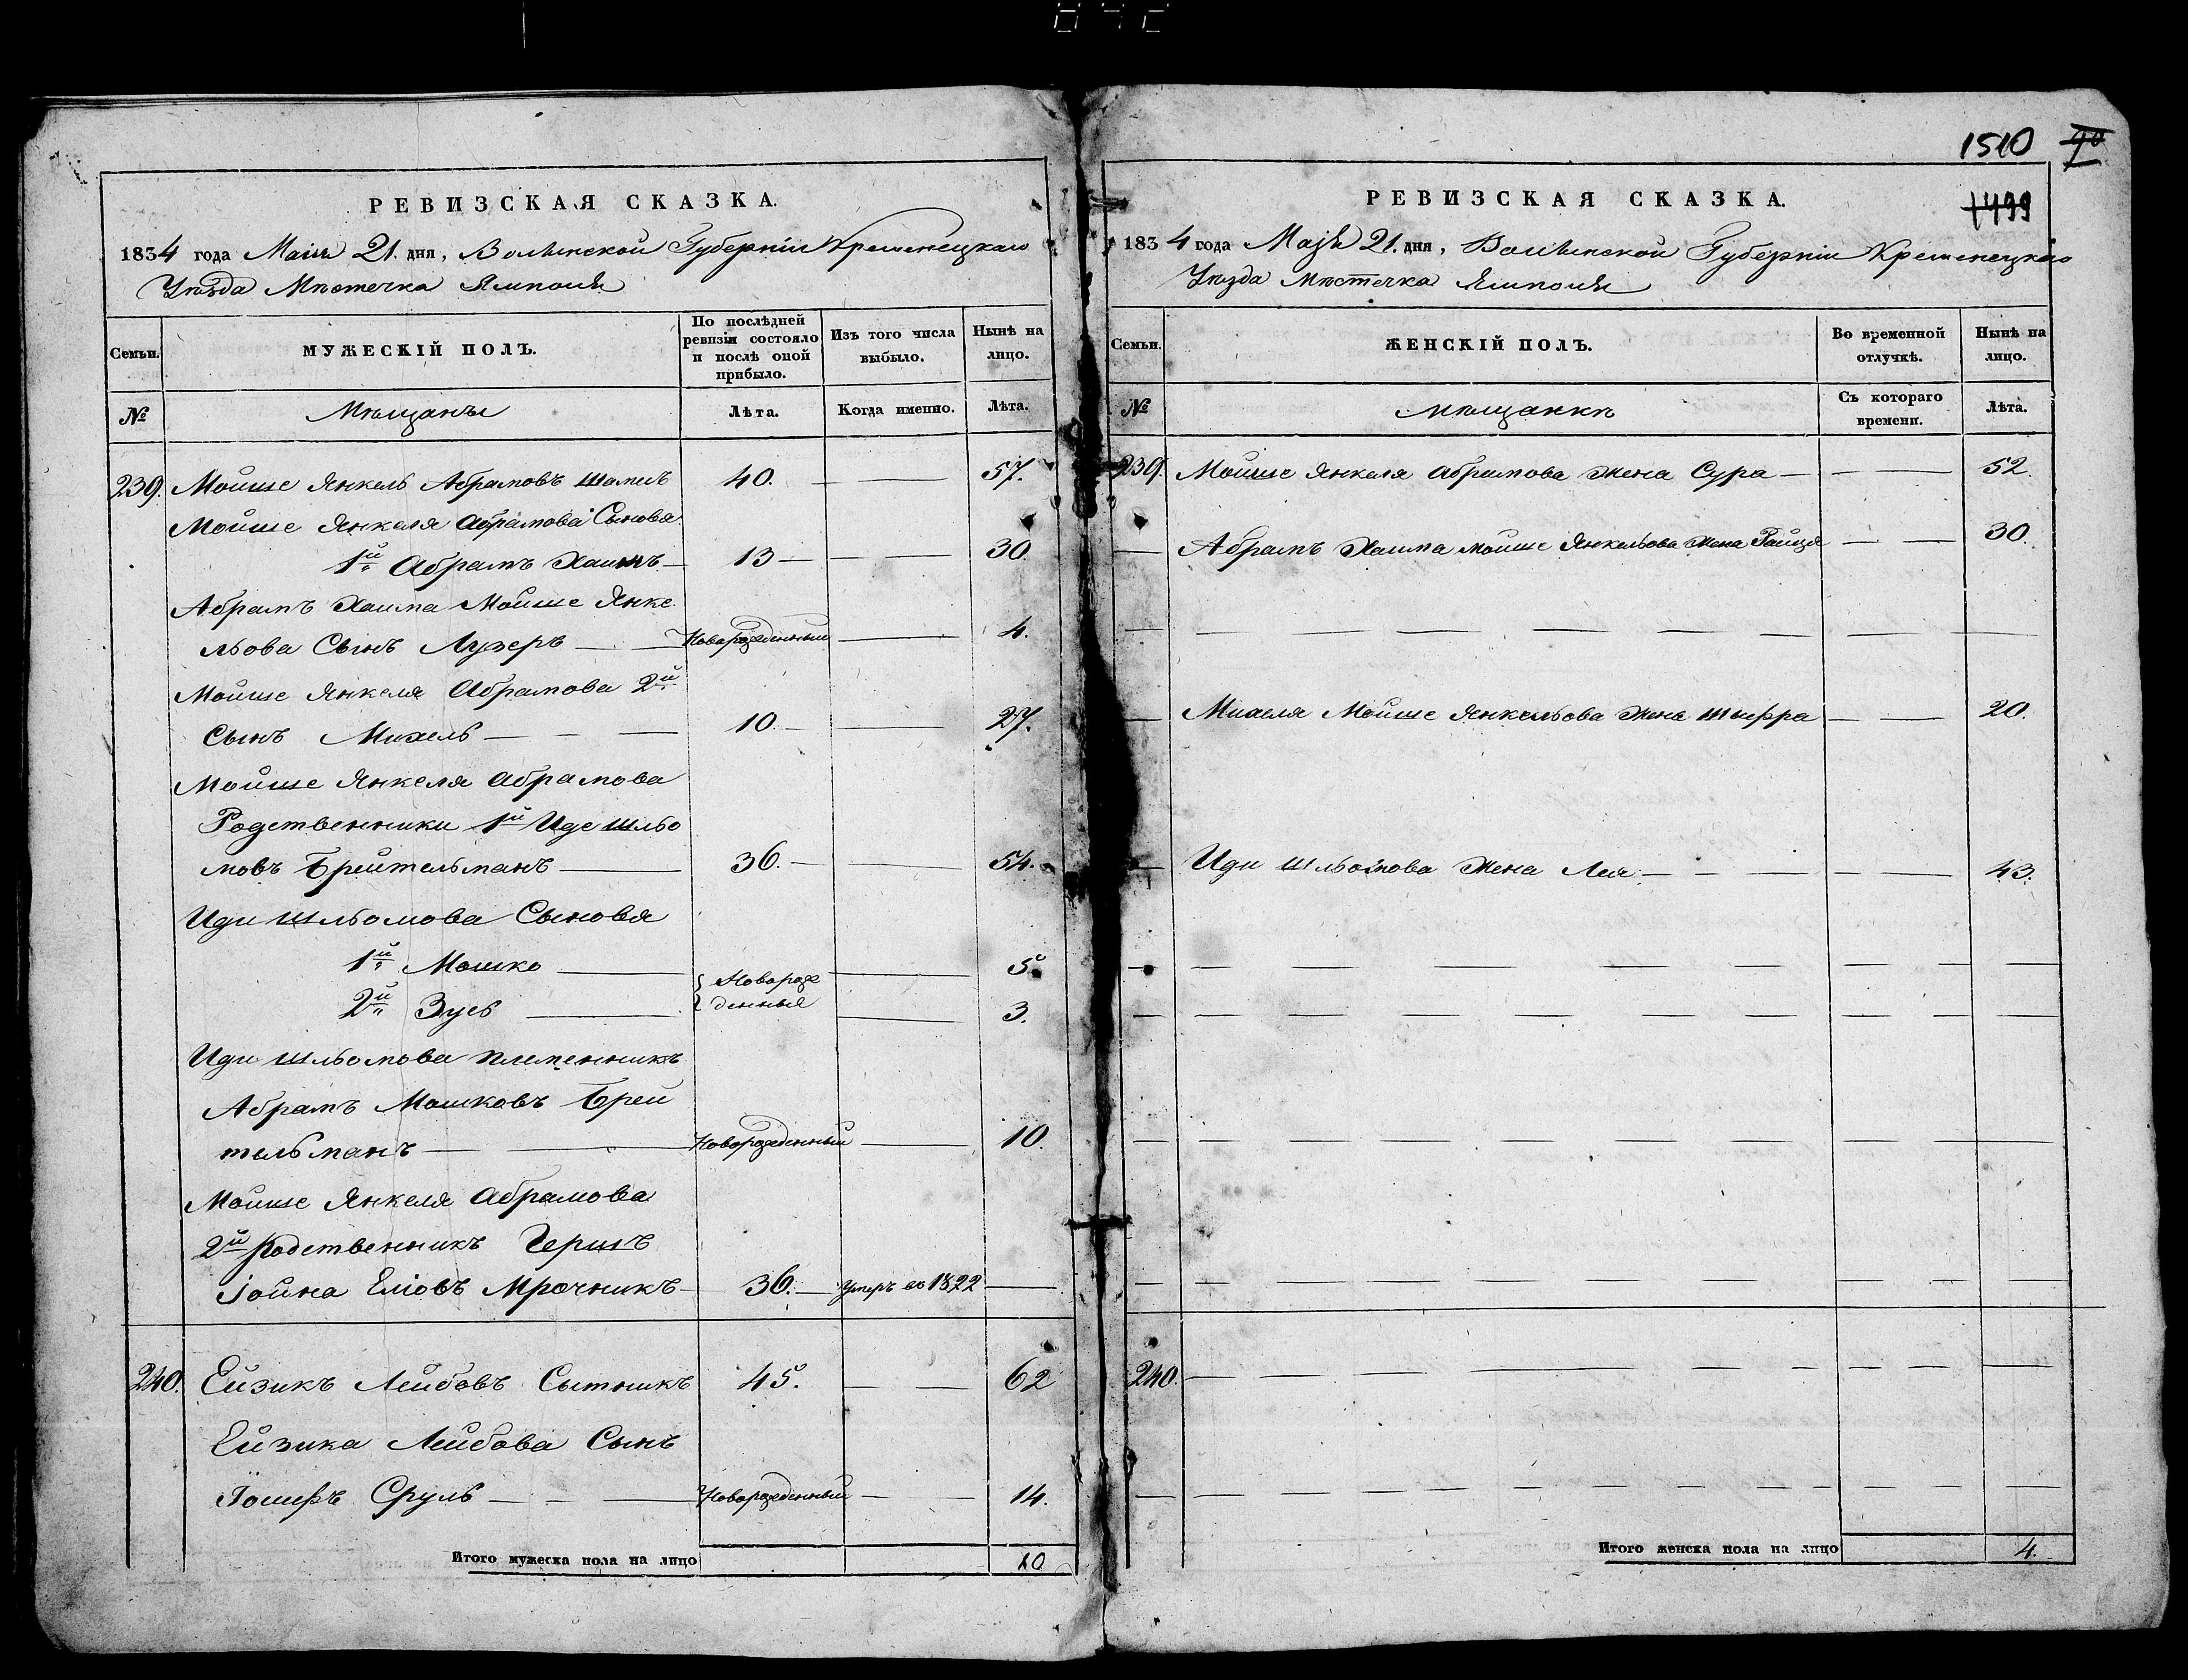 1510
90
1499
РЕВИЗСКАЯ СКАЗКА.
1834 года Маія 21. дня, Волынской Губерніи Кременецкаго
Уѣзда Мѣстечка Ямполя
Семьи.
МУЖЕСКІЙ ПОЛЪ.
По послѣдней ревизіи состояло и послѣ оной прибыло.
Изъ того числа выбыло.
Нынѣ на лицо.
№
Мѣщаны
Лѣта.
Когда именно.
Лѣта.
239. Мойше Янкель Абрамовъ 40. — 57.
Мойше Янкеля Абрамова Сыновья
1й Абрамъ Хаимъ — 13 — 30.
Абрамъ Хаима Мойше Янке
льова Сынъ Лузеръ — Новорожденный — 4.
Мойше Янкеля Абрамова 2й
Сынъ Михель — 10. — 27.
Мойше Янкеля Абрамова
Родственники 1й Иде Шльо
мовъ Брейтельманъ — 36. — 54.
Иди Шльомова Сыновья
1й Мошко — Новорож 5.
2й Зусь — денные 3.
Иди Шльомова племенникъ
Абрамъ Мошковъ Брей
тельманъ — Новорожденный — 10.
Мойше Янкеля Абрамова
2й Родственникъ Гершъ
Іойна Еліовъ Мрочникъ — 36. — Умеръ въ 1822 —
240. Ейзикъ Лейбовъ Сытникъ 45. — 62
Ейзика Лейбова Сынъ
Іосифъ Сруль — Новорожденный — 14.
Итого мужеска пола на лицо 10
РЕВИЗСКАЯ СКАЗКА.
1834 года Маія 21. дня, Волынской Губерніи Кременецкаго
Уѣзда Мѣстечка Ямполя
Семьи.
ЖЕНСКІЙ ПОЛЪ.
Во временной отлучкѣ.
Нынѣ на лицо.
№
Мѣщанки
Съ котораго времени.
Лѣта.
239. Мойше Янкеля Абрамова Жена Сура — 52.
— Абрамъ Хаима Мойше Янкельова Жена Райця — 30.
— Михеля Мойше Янкельова Жена Шыфра — 20.
— Иди Шльомова Жена Лея — 43.
240. —
Итого женска пола на лицо 4.